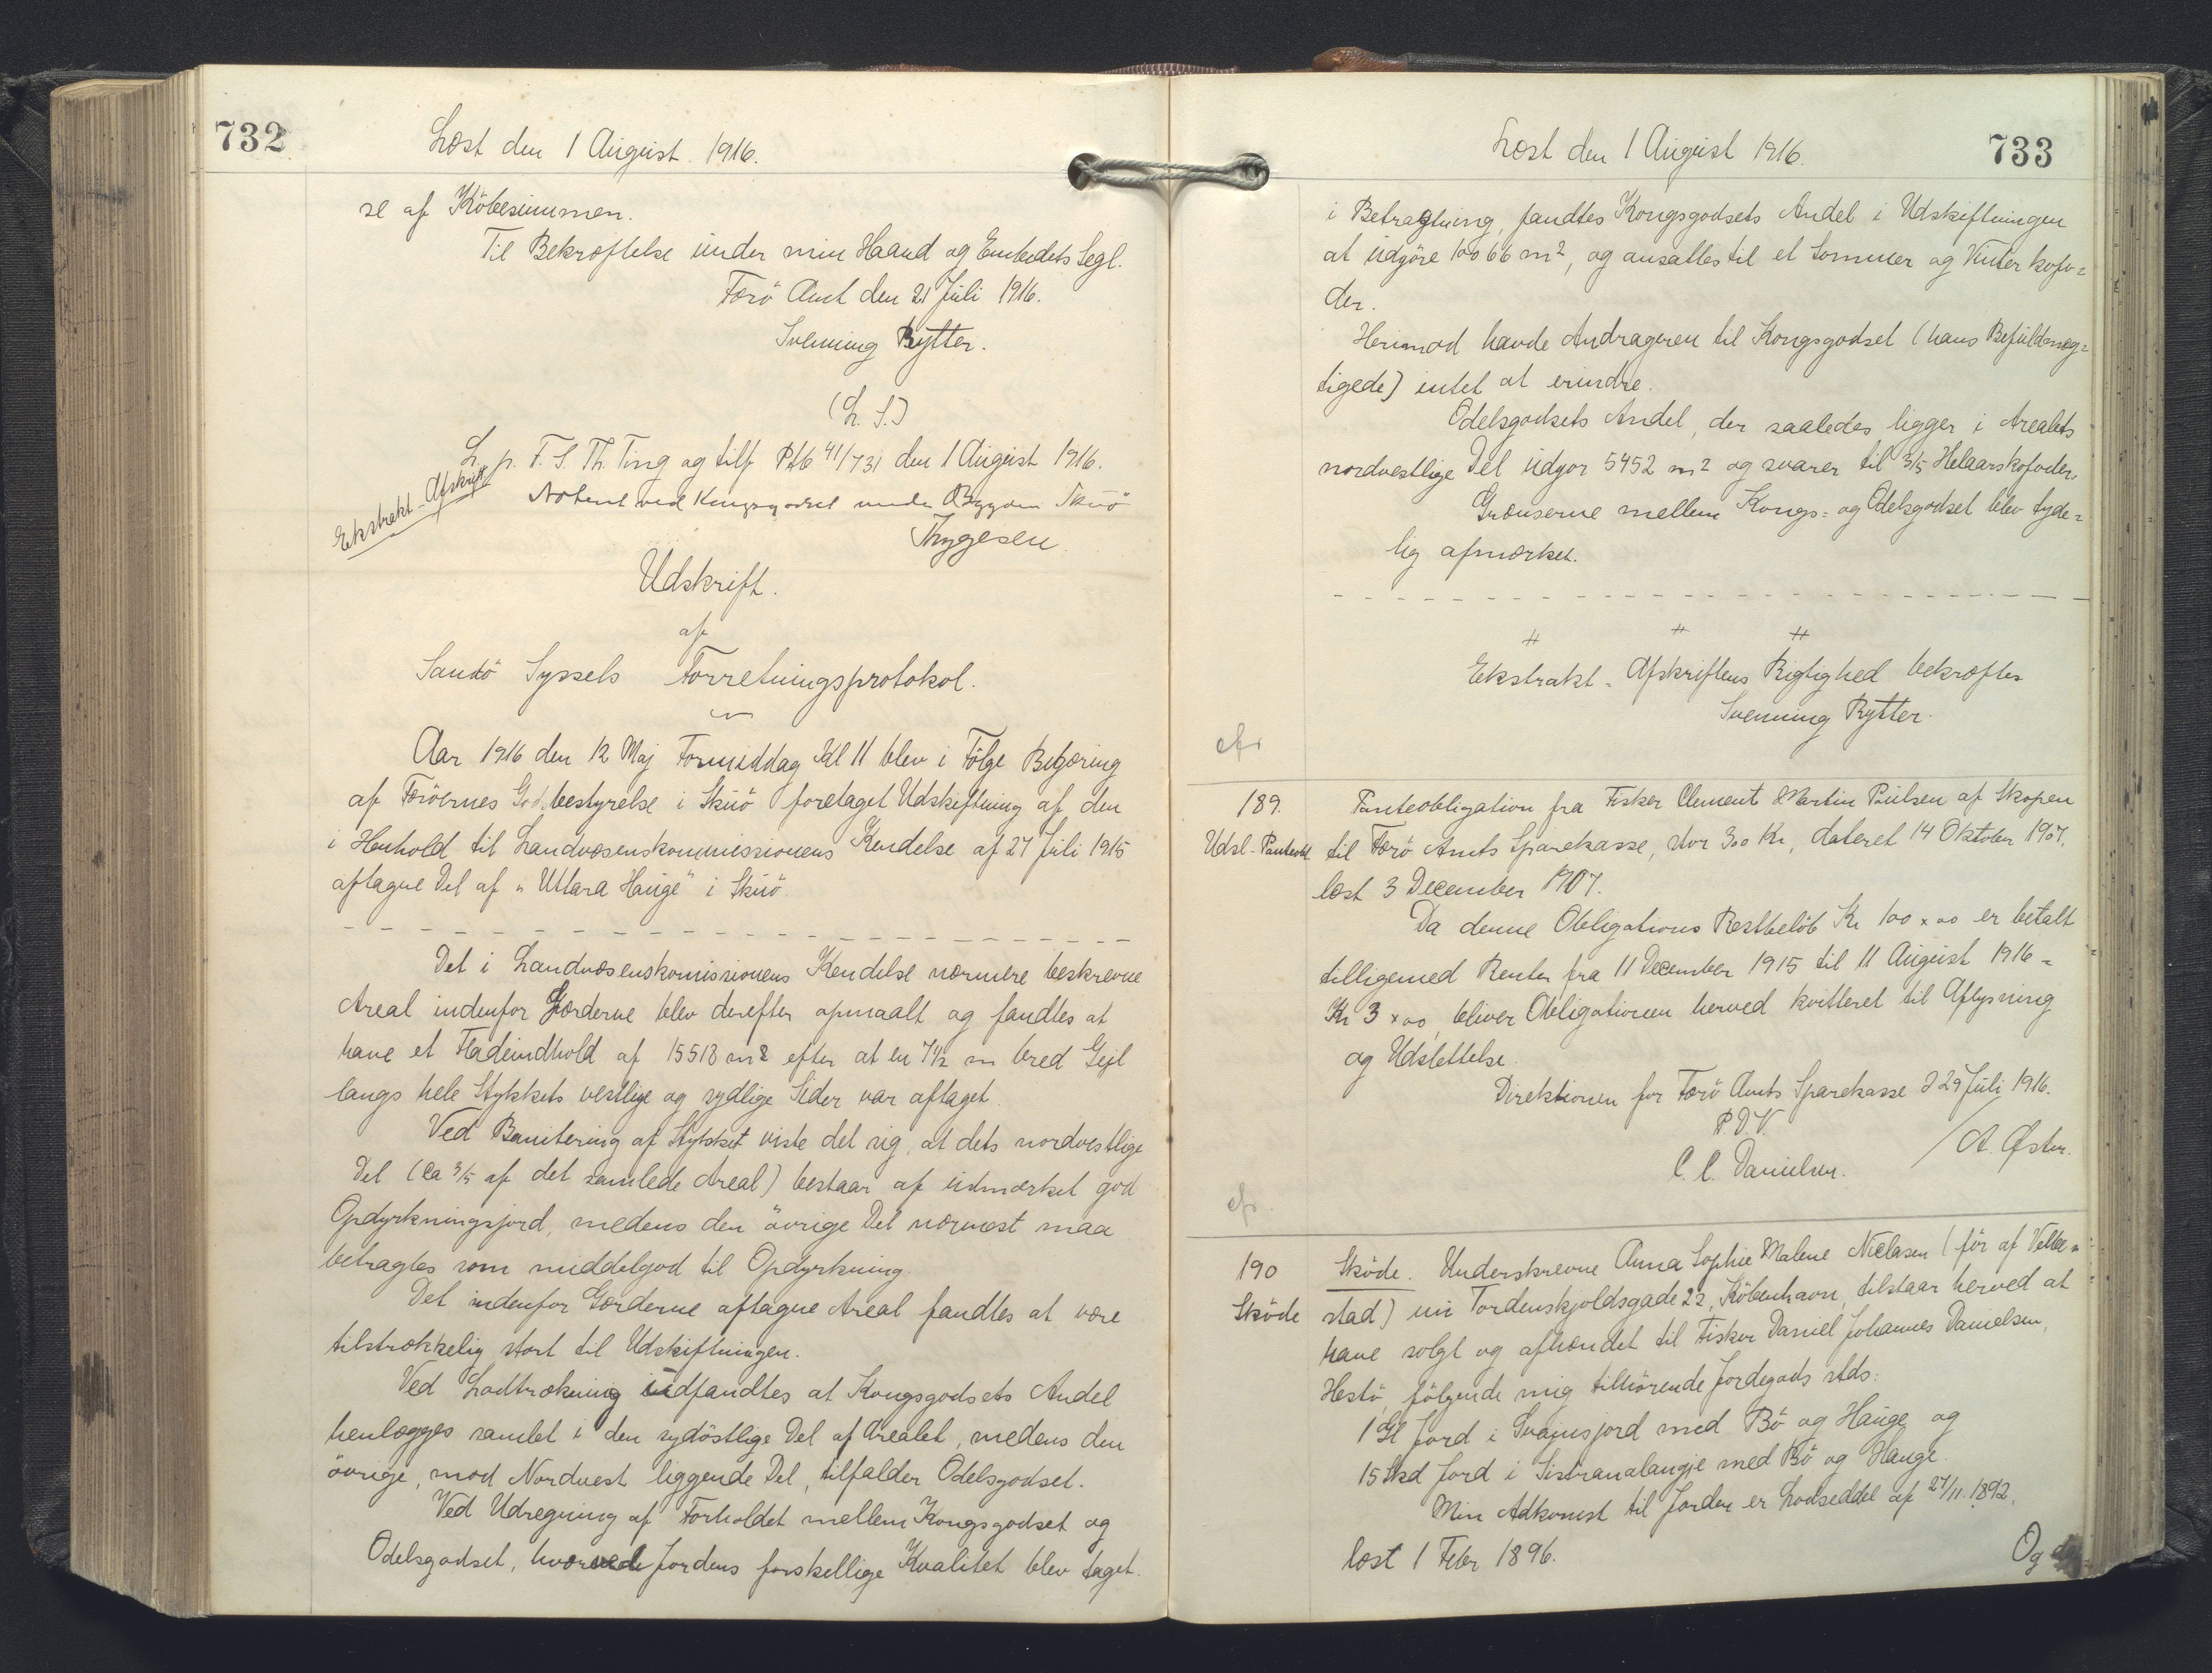 732
Læst den 1 August 1916.
se af Købesummen.
Til Bekræftelse under min Haand og Embedets Segl.
Færö Amt den 21 Juli 1916.
Svenning Rytter.
(L. S.)
L. p. F. S. Th. Ting og tilf Ptb 41/731 den 1 August 1916.
Ekstrakt-Afskrift
Noteret ved Kongsgodset under Bygden Skuö
Thygesen.
Udskrift.
af
Sandö Syssels Forretningsprotokol.
Aar 1916 den 12 Maj Formiddag Kl 11 blev i Følge Begæring
af Færöernes Godsbestyrelse i Skuö foretaget Udskiftning af den
i Henhold til Landvæsenskommissionens Kendelse af 27 Juli 1915
aftagne Del af "Uttara Hauge" i Skuö.
Det i Landvæsenskomissionens Kendelse nærmere beskrevne
Areal indenfor Gærderne blev derefter opmaalt og fandtes at
have et Fladeindhold af 15518 m2 efter at en 7½ m bred Gejl
langs hele Stykkets vestlige og sydlige Sider var aftaget.
Ved Bonitering af Stykket viste det sig, at dets nordvestlige
Del (ca 3/5 af det samlede Areal) bestaar af udmærket god
Opdyrkningsjord, medens den övrige Del nærmest maa
betragtes som middelgod til Opdyrkning.
Det indenfor Gærderne aftagne Areal fandtes at være
tilstrækkelig stort til Udskiftningen.
Ved Lodtrækning udfandtes at Kongsgodsets Andel
henlægges samlet i den sydöstlige Del af Arealet, medens den
övrige, mod Nordvest liggende Del, tilfalder Odelsgodset.
Ved Udregning af Forholdet mellem Kongsgodset og
Odelsgodset, hvorved Jordens forskellige Kvalitet blev taget.
Læst den 1 August 1916.
733
i Betragtning, fandtes Kongsgodsets Andel i Udskiftningen
at udgöre 10066 m2, og ansattes til et Sommer og Vinter kofo=
der.
Herimod havde Andrageren til Kongsgodset (hans Befuldmæg=
tigede) intet at erindre.
Odelsgodsets Andel, der saaledes ligger i Arealets
nordvestlige Del udgør 5452 m2 og svarer til 3/5 Helaarskofoder.
Grænserne mellem Kongs= og Odelsgodset blev tyde=
lig afmærket.
Ekstrakt-Afskriftens Rigtighed bekræftes
Svenning Rytter.
189.
Udsl. Panteobl
Panteobligation fra Fisker Clement Martin Poulsen af Skopen
til Færö Amts Sparekasse, stor 300 Kr, dateret 14 Oktober 1907,
læst 3 December 1907.
Da denne Obligations Restbelöb Kr 100 x 00 er betalt
tilligemed Renter fra 11 December 1915 til 11 August 1916 =
Kr 3 x 00, bliver Obligationen herved kvitteret til Aflysning
og Udslettelse.
Direktionen for Færö Amts Sparekasse d 29 Juli 1916.
P.D.V.
C. C. Danielsen. / A. Øster.
190
Sköde
Sköde. Underskrevne Anna Sophie Malene Niclasen (för af Velbe=
stad) nu Tordenskjoldsgade 22, Köbenhavn, tilstaar herved at
have solgt og afhændet til Fisker Daniel Johannes Danielsen,
Hestö, fölgende mig tilhörende Jordegods stds:
1 Gl Jord i Svajnsjord med Bö og Hauge og
15 Skd Jord i Sistranalangje med Bö og Hauge.
Min Adkomst til Jorden er Lodseddel af 27/11. 1892,
læst 1 Febr 1896.
Og